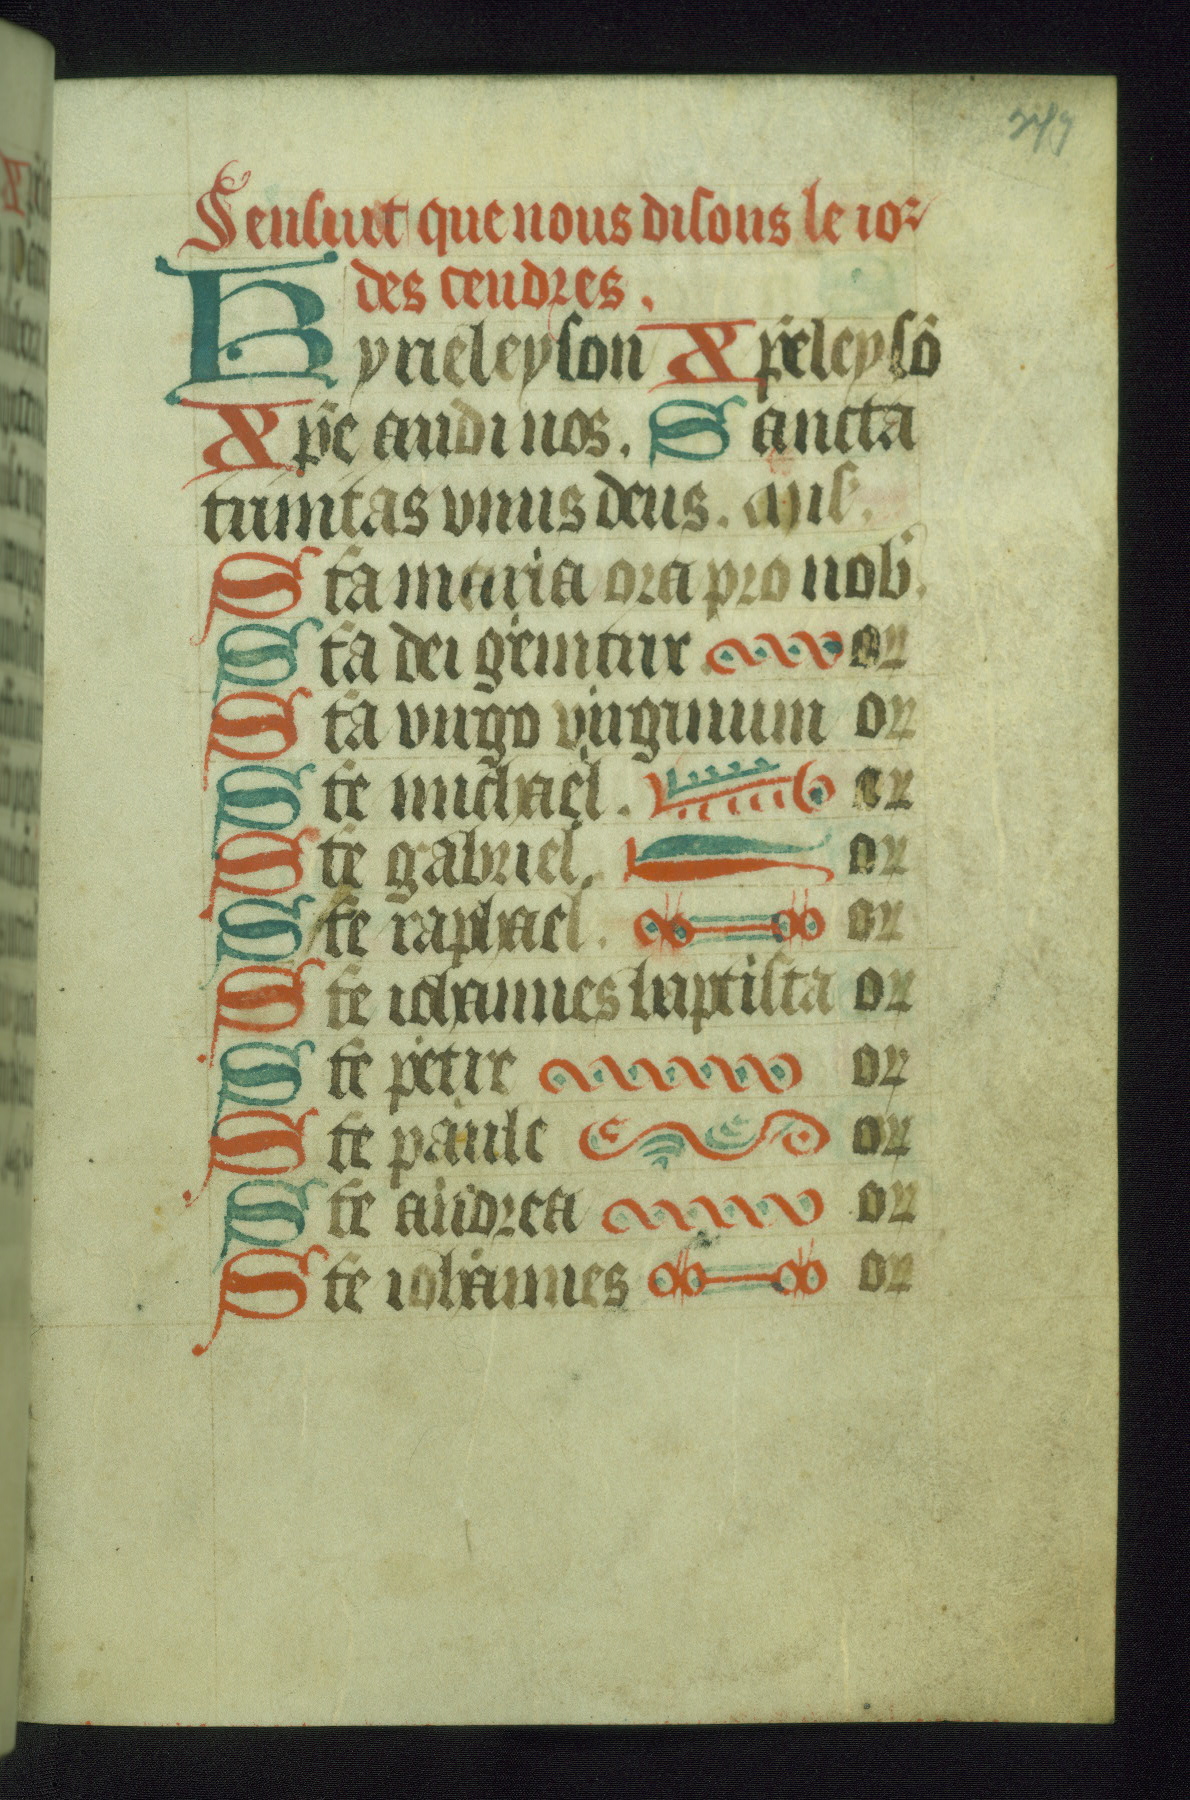 Sensuit que nous disons le ior
des cendres.
Kyrieleyson Xp̄eleysō
Xp̄e audi nos. Sancta
trinitas vnus deus. mis̄.
Sc̄a maria ora pro nob̄.
Sc̄a dei genitrix or
Sc̄a virgo virginum or
Sc̄e michael. or
Sc̄e gabriel. or
Sc̄e raphael. or
Sc̄e iohannes baptista or
Sc̄e petre or
Sc̄e paule or
Sc̄e andrea or
Sc̄e iohannes or